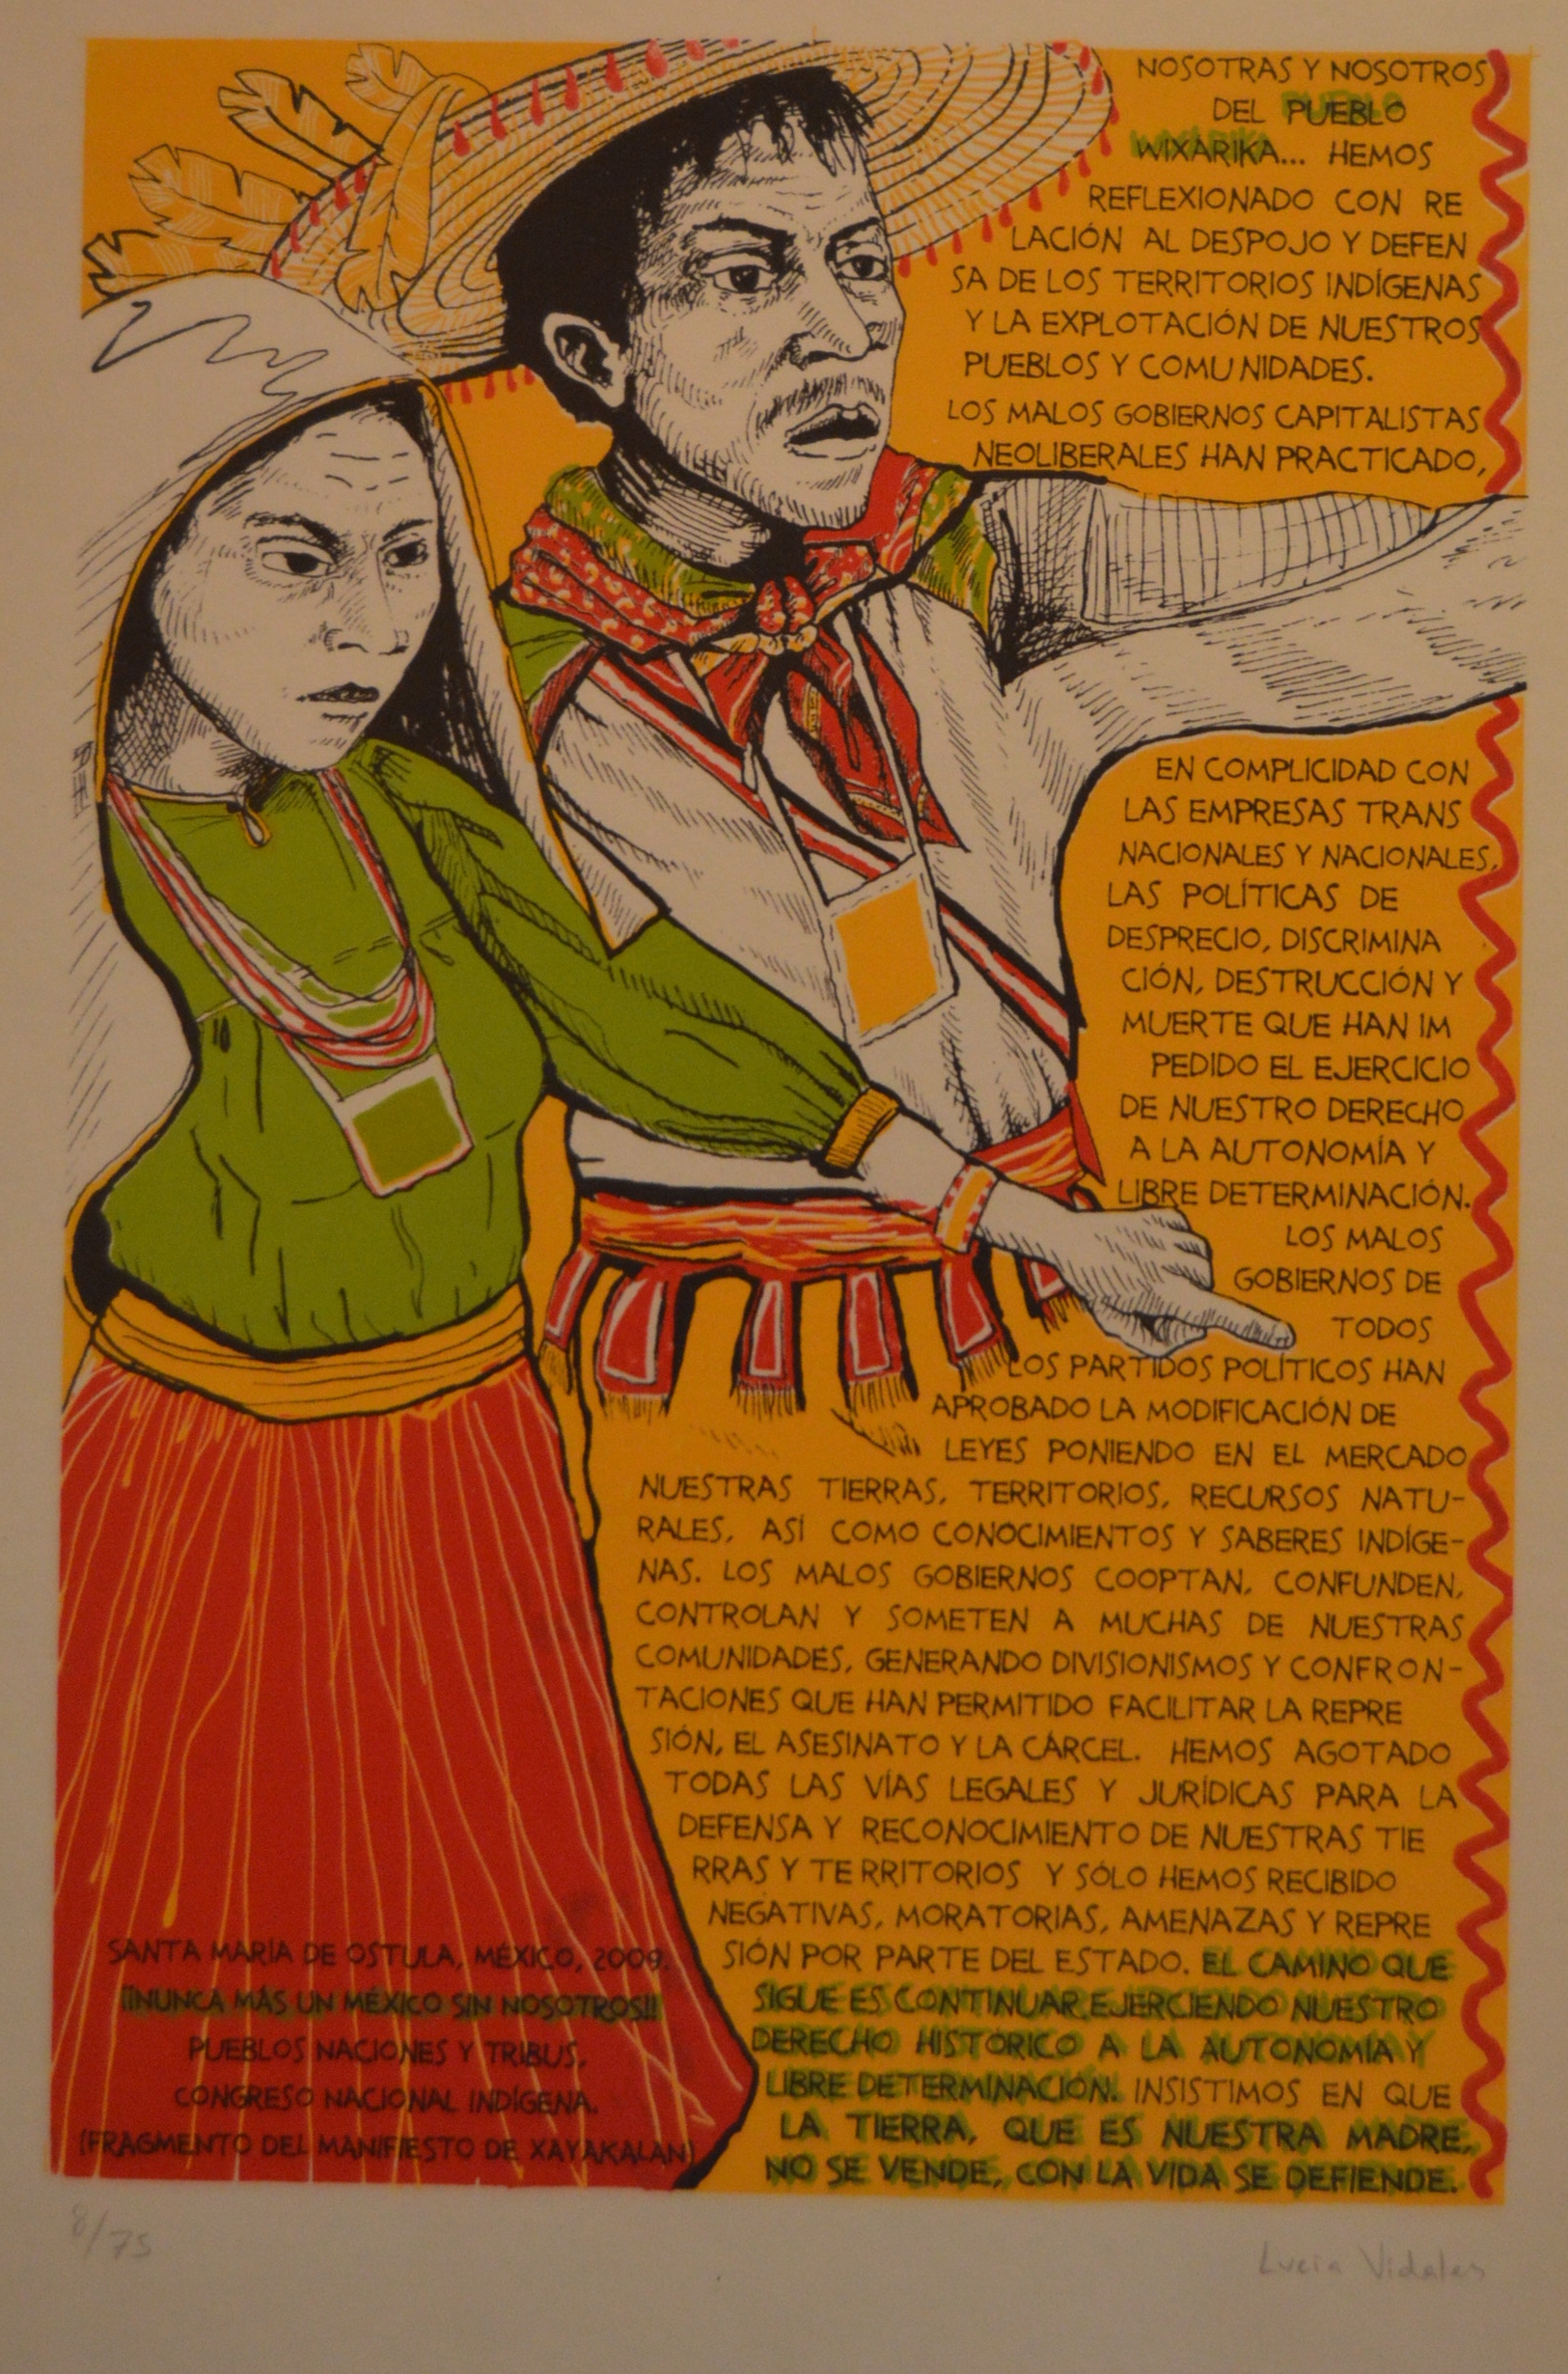 NOSOTRAS Y NOSOTROS
DEL PUEBLO
WIXÁRIKA... HEMOS
REFLEXIONADO CON RE
LACIÓN AL DESPOJO Y DEFEN
SA DE LOS TERRITORIOS INDÍGENAS
Y LA EXPLOTACIÓN DE NUESTROS
PUEBLOS Y COMUNIDADES.
LOS MALOS GOBIERNOS CAPITALISTAS
NEOLIBERALES HAN PRACTICADO,
EN COMPLICIDAD CON
LAS EMPRESAS TRANS
NACIONALES Y NACIONALES,
LAS POLÍTICAS DE
DESPRECIO, DISCRIMINA
CIÓN, DESTRUCCIÓN Y
MUERTE QUE HAN IM
PEDIDO EL EJERCICIO
DE NUESTRO DERECHO
A LA AUTONOMÍA Y
LIBRE DETERMINACIÓN.
LOS MALOS
GOBIERNOS DE
TODOS
LOS PARTIDOS POLÍTICOS HAN
APROBADO LA MODIFICACIÓN DE
LEYES PONIENDO EN EL MERCADO
NUESTRAS TIERRAS, TERRITORIOS, RECURSOS NATU-
RALES, ASÍ COMO CONOCIMIENTOS Y SABERES INDÍGE-
NAS. LOS MALOS GOBIERNOS COOPTAN, CONFUNDEN,
CONTROLAN Y SOMETEN A MUCHAS DE NUESTRAS
COMUNIDADES, GENERANDO DIVISIONISMOS Y CONFRON-
TACIONES QUE HAN PERMITIDO FACILITAR LA REPRE
SIÓN, EL ASESINATO Y LA CÁRCEL. HEMOS AGOTADO
TODAS LAS VÍAS LEGALES Y JURÍDICAS PARA LA
DEFENSA Y RECONOCIMIENTO DE NUESTRAS TIE
RRAS Y TERRITORIOS Y SÓLO HEMOS RECIBIDO
NEGATIVAS, MORATORIAS, AMENAZAS Y REPRE
SIÓN POR PARTE DEL ESTADO. EL CAMINO QUE
SIGUE ES CONTINUAR EJERCIENDO NUESTRO
DERECHO HISTÓRICO A LA AUTONOMÍA Y
LIBRE DETERMINACIÓN. INSISTIMOS EN QUE
LA TIERRA, QUE ES NUESTRA MADRE,
NO SE VENDE, CON LA VIDA SE DEFIENDE.
SANTA MARÍA DE OSTULA, MÉXICO, 2009.
¡¡NUNCA MÁS UN MÉXICO SIN NOSOTROS!!
PUEBLOS NACIONES Y TRIBUS,
CONGRESO NACIONAL INDÍGENA.
(FRAGMENTO DEL MANIFIESTO DE XAYAKALAN)
8/75
Lucia Vidales